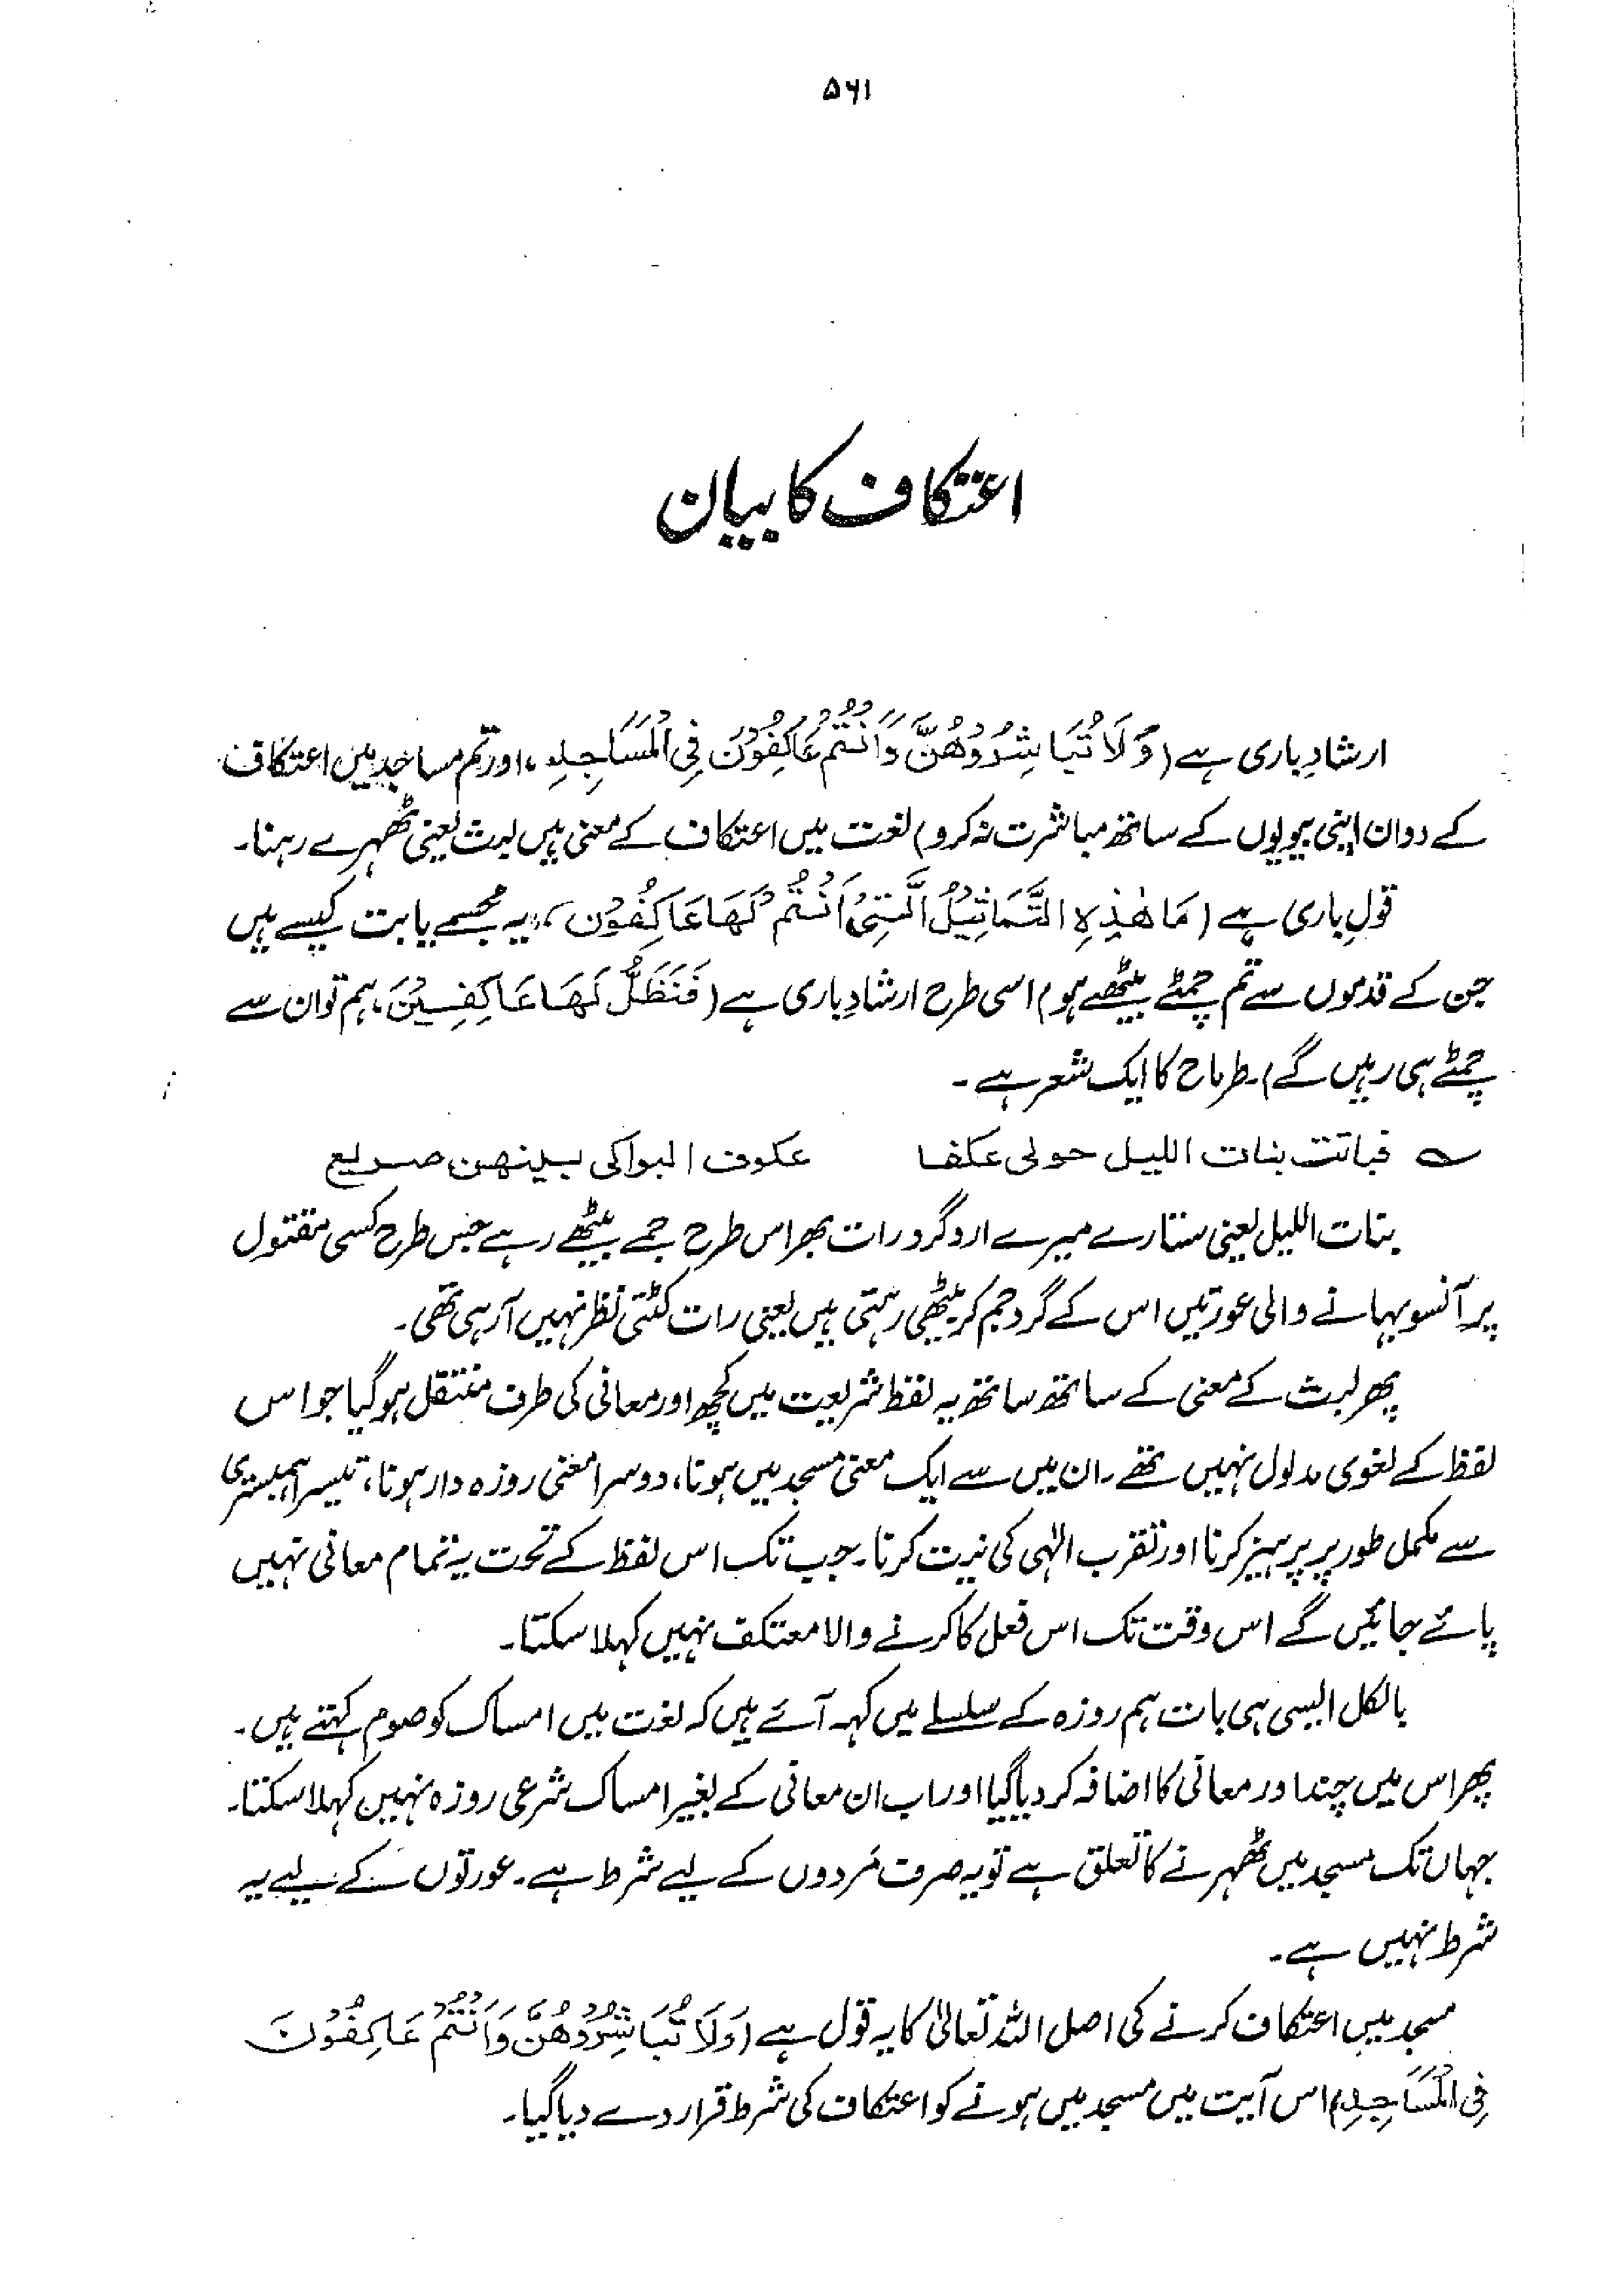 ۵۶۱
اعتکاف کا بیان
ارشادِ باری ہے (وَلَا تُبَاشِرُوْهُنَّ وَاَنْتُمْ عَاكِفُوْنَ فِی الْمَسَاجِدِ، اور تم مساجد میں اعتکاف
کے دوان اپنی بیویوں کے ساتھ مباشرت نہ کرو) لغت میں اعتکاف کے معنی ہیں لبث یعنی ٹھہرے رہنا۔
قولِ باری ہے (مَا هٰذِهِ التَّمَاثِيْلُ الَّتِیْ اَنْتُمْ لَهَا عَاكِفُوْن، یہ مجسمے یا بت کیسے ہیں
جن کے قدموں سے تم چمٹے بیٹھے ہو) اسی طرح ارشادِ باری ہے (فَنَظَلُّ لَهَا عَاكِفِيْنَ، ہم تو ان سے
چمٹے ہی رہیں گے)۔ طرماح کا ایک شعر ہے۔
؎ فباتت بنات الليل حولی عکفا عکوف البواکی بينهن صريع
بنات اللیل یعنی ستارے میرے اردگرد رات بھر اس طرح جمے بیٹھے رہے جس طرح کسی مقتول
پر آنسو بہانے والی عورتیں اس کے گرد جم کر بیٹھی رہتی ہیں یعنی رات کٹتی نظر نہیں آرہی تھی۔
پھر لبث کے معنی کے ساتھ ساتھ یہ لفظ شریعت میں کچھ اور معانی کی طرف منتقل ہو گیا جو اس
لفظ کے لغوی مدلول نہیں تھے۔ ان میں سے ایک معنی مسجد میں ہونا، دوسرا معنی روزہ دار ہونا، تیسرا ہمبستری
سے مکمل طور پر پرہیز کرنا اور تقرب الٰہی کی نیت کرنا۔ جب تک اس لفظ کے تحت یہ تمام معانی نہیں
پائے جائیں گے اس وقت تک اس فعل کا کرنے والا معتکف نہیں کہلا سکتا۔
بالکل ایسی ہی بات ہم روزہ کے سلسلے میں کہہ آئے ہیں کہ لغت میں امساک کو صوم کہتے ہیں۔
پھر اس میں چند اور معانی کا اضافہ کر دیا گیا اور اب ان معانی کے بغیر امساک شرعی روزہ نہیں کہلا سکتا۔
جہاں تک مسجد میں ٹھہرنے کا تعلق ہے تو یہ صرف مَردوں کے لیے شرط ہے۔ عورتوں کے لیے یہ
شرط نہیں ہے۔
مسجد میں اعتکاف کرنے کی اصل اللہ تعالیٰ کا یہ قول ہے (وَلَا تُبَاشِرُوْهُنَّ وَاَنْتُمْ عَاكِفُوْنَ
فِی الْمَسَاجِدِ) اس آیت میں مسجد میں ہونے کو اعتکاف کی شرط قرار دے دیا گیا۔